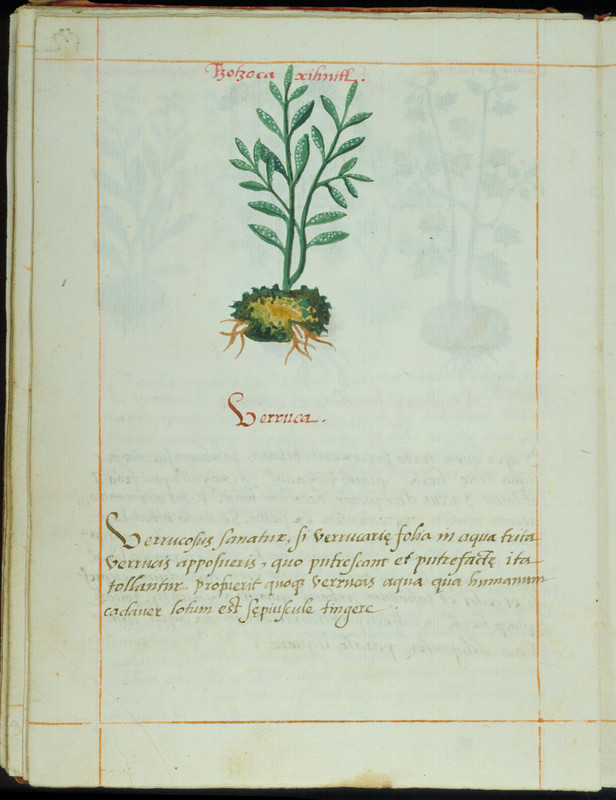 Tzotzoca xihuitl.
Verruca.
Verrucosus sanatur, si verrucarię folia in aqua trita
verrucis apposueris, quo putrescant et putrefactę ita
tollantur. Profuerit quoq; verrucas aqua qua humanum
cadaver lotum est sępiuscule tingere.